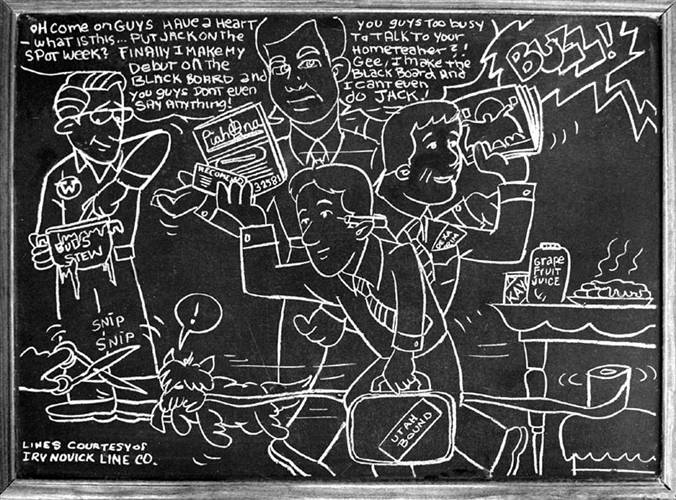 OH COME ON GUYS HAVE A HEART
- WHAT IS THIS... PUT JACK ON THE
SPOT WEEK? FINALLY I MAKE MY
DEBUT ON THE
BLACK BOARD AND
YOU GUYS DONT EVEN
SAY ANYTHING!
YOU GUYS TOO BUSY
TO TALK TO YOUR
HOMETEAHER?!
GEE, I MAKE THE
BLACK BOARD AND
I CANT EVEN
DO JACK!
BUZZ!
RECOMEND
32581
W
STEW
UTAH
BOUND
GRAPE
FRUIT
JUICE
KAY
SNIP
SNIP
!
LINES COURTESY OF
IRV NOVICK LINE CO.